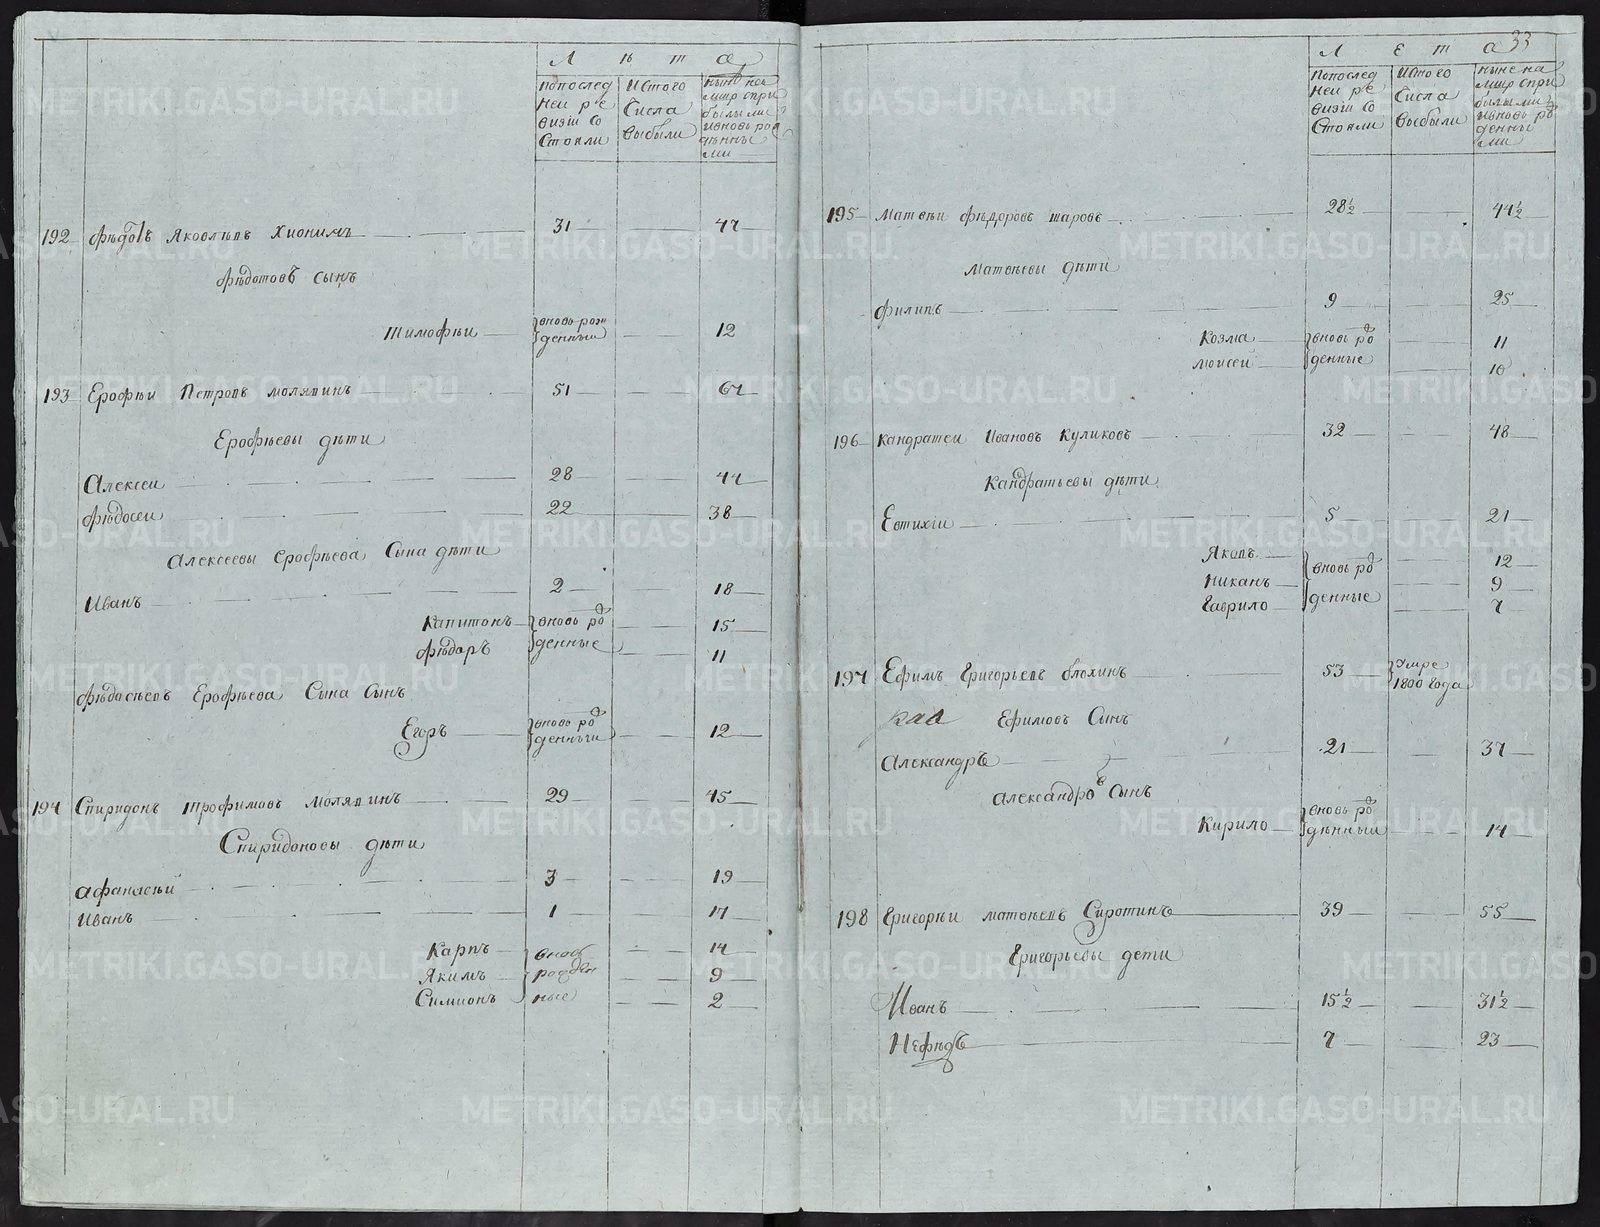 Л ѣ т а
попослед ней ре визiи со стояли
изтого числа выбыли
ныне на лицо спри былыми ивновь рож денны ми
192 Фѣдотъ Яковлевъ Хионинъ 31 47
Фѣдотовъ сынъ
Тимофѣи вновь рож денный 12
193 Ерофѣи Петровъ Молявинъ 51 67
Ерофѣевы дѣти
Алексеи 28 44
Фѣдосеи 22 38
Алексеевы Ерофѣева Сына дѣти
Иванъ 2 18
Капитонъ вновь рож 15
Фѣдоръ денные 11
Фѣдосѣевъ Ерофѣева Сына Сынъ
Егоръ вновь рож денныи 12
194 Спиридонъ Трофимовъ Молявинъ 29 45
Спиридоновы дѣти
Афанасѣй 3 19
Иванъ 1 17
Карпъ вновь 14
Якимъ рожден 9
Симионъ ные 2
33
Л е т а
попослед ней ре визiи со стояли
изтого числа выбыли
ныне на лицо спри былыми ивновь рож денны ми
195 Матвѣи Фѣдоровъ Шаровъ 28½ 44½
Матвѣевы дѣти
Филипъ 9 25
Козма вновь рож 11
Моисеи денные 10
196 Кандратеи Ивановъ Куликовъ 32 48
Кандратьевы дѣти
Евтихiи 5 21
Яковъ вновь рож 12
Никанъ 9
Гаврило денные 7
197 Ефимъ Григорьевъ Блохинъ 53 Умре 1800 года
Ефимовъ Сынъ
Александръ 21 37
Александровъ Сынъ
Кирило вновь рож дѣнныи 14
198 Григорѣи Матвѣевъ Сиротинъ 39 55
Григорьевы дети
Иванъ 15½ 31½
Нефѣдъ 7 23
METRIKI.GASO-URAL.RU